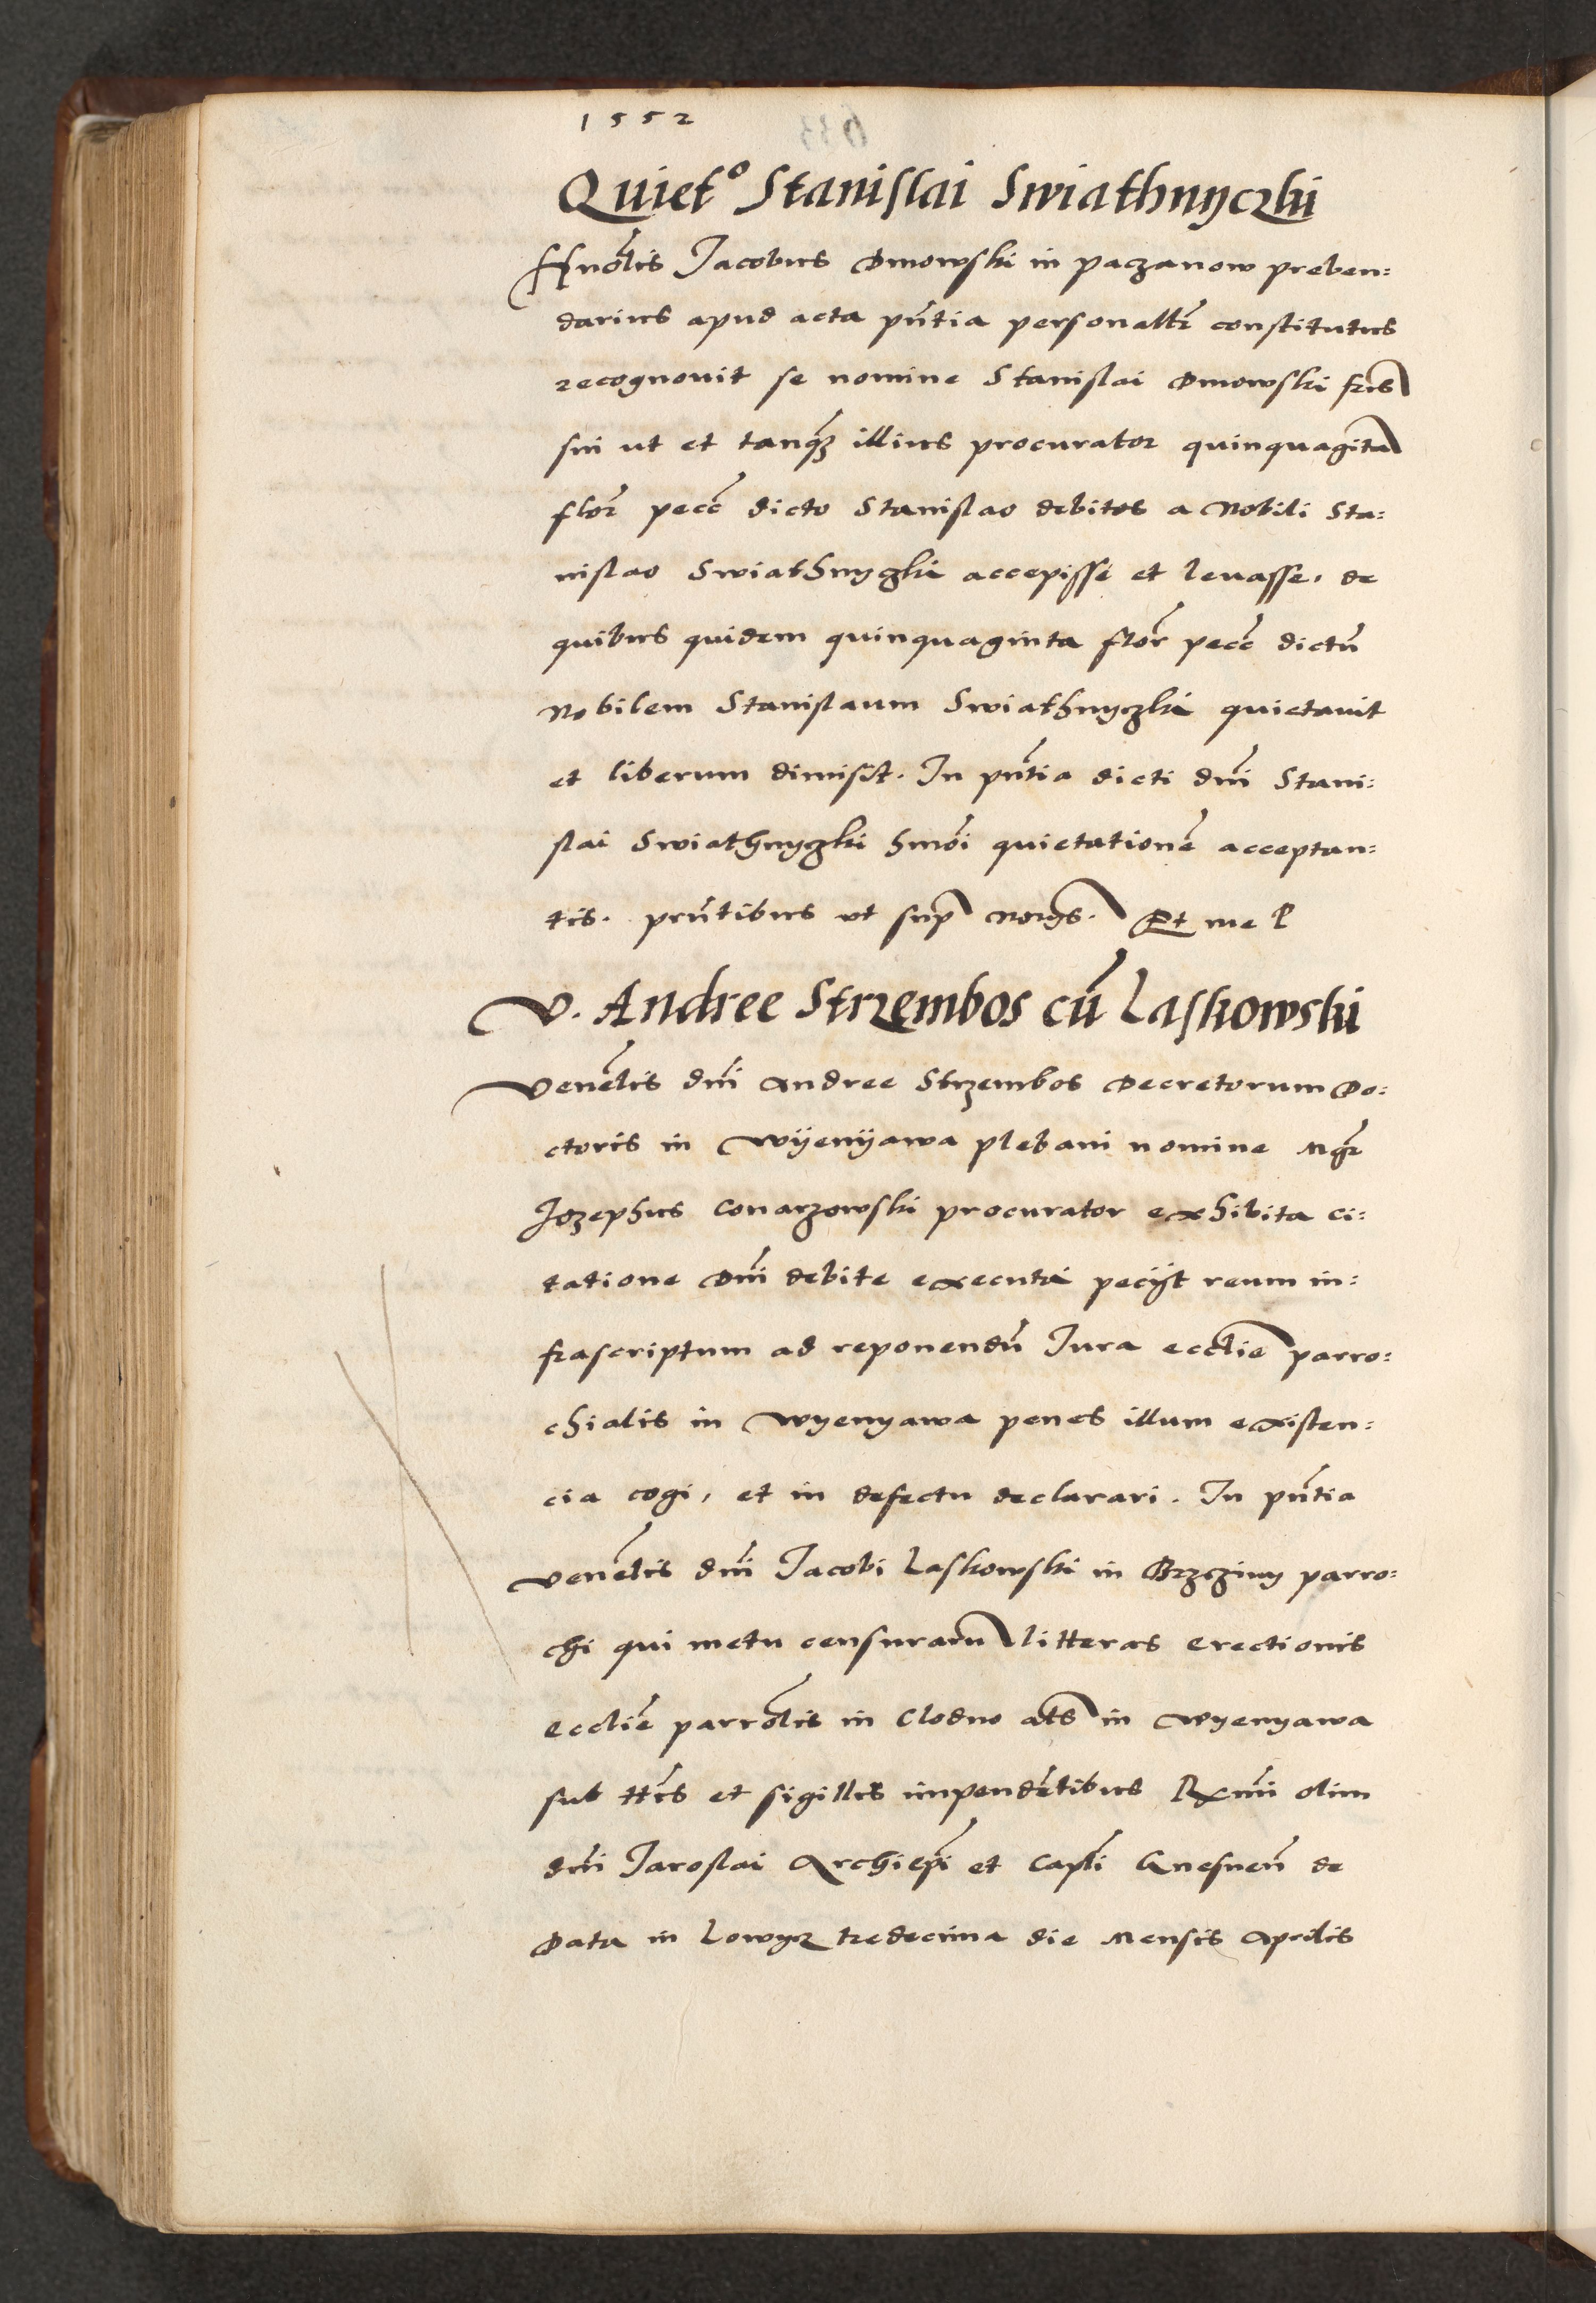 1552
Quiet⁰ Stanislai Swiathnyczki
Hnōlis Jacobus Dmowski in paczanow preben=
darius apud acta pn̄tia personaltr̄ constitutus
recognouit se nomine Stanislai Dmowski fr̄is
sui ut et tanqȝ illius procurator quinquagīta
flor̄ pecc̄ dicto Stanislao debitos a Nobili Sta=
nislao Swiathnyczki accepisse et leuasse. de
quibus quidem quinquaginta flor̄ pecc̄ dictū
Nobilem Stanislaum Swiathnyczki quietauit
et liberum dimisit. In pn̄tia dicti dn̄i Stani=
slai Swiathnyczki hmōi quietationē acceptan=
tis. prn̄tibus ut sup̄ Et me
V. Andree Strzembos cū Laskowski
Venēlis dn̄i Andree Strzembos Decretorum Do=
ctoris in Wÿenÿawa plebani nomine Mgr̄
Jozephus Conarzowski procurator exhibita ci=
tatione Dn̄i debite executa pecijt reum in=
frascriptum ad reponendū Jura ecclīe parro=
chialis in Wyenyawa penes illum existen=
cia cogi, et in defectu declarari. In pn̄tia
venēlis dn̄i Jacobi Laskowski in Brzeziny parro=
chi qui metu censurarū litteras erectionis
ecclīe parrōlis in Clodno als̄ in Wyenyawa
sub tt̄is et sigillis impendētibus Rx̄mi olim
dn̄i Jaroslai Archiep̄i et Capl̄i Gnesnen̄ de
Data in Lowycz tredecima die Mensis Aprilis